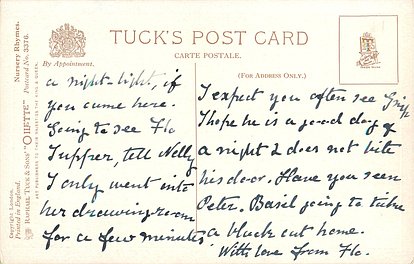 Nursery Rhymes.
Postcard No. 3376.
By Appointment.
TUCK'S POST CARD
CARTE POSTALE.
(FOR ADDRESS ONLY.)
RAPHAEL TUCK & SONS' "OILETTE"
ART PUBLISHERS TO THEIR MAJESTIES THE KING & QUEEN.
Copyright London.
Printed in England.
a night-light, if
you came here.
Going to see Flo
Tupper, tell Nelly
I only went into
her drawing-room
for a few minutes
I expect you often see Grip
I hope he is a good dog
a night & does not bite
his door. Have you seen
Peter. Basil going to take
a black cat home.
With love from Flo.